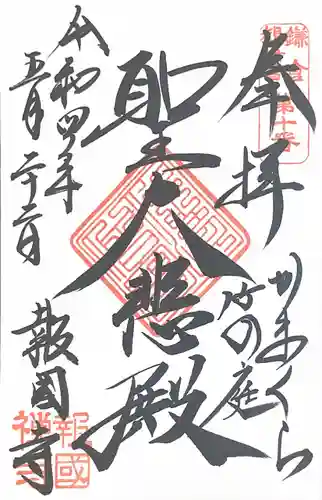 鎌倉
第十番
奉拝
かまくら
竹の庭
聖大悲殿
令和四年
五月二十二日
報國寺
報國
禅寺